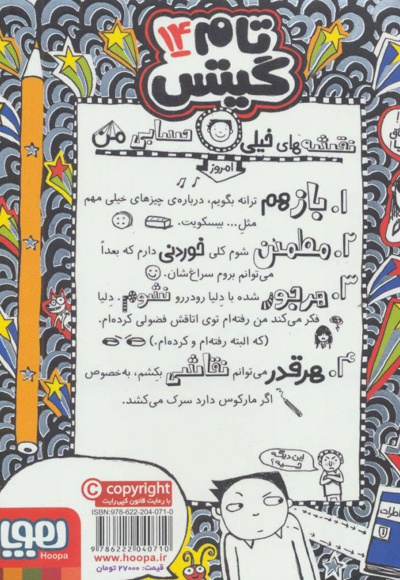 تام
۱۴
گیتس
نقشه‌های خیلی حسابی من
امروز
۱. باز هم ترانه بگویم، درباره‌ی چیزهای خیلی مهم
مثل... بیسکویت.
۲. مطمئن شوم کلی خوردنی دارم که بعداً
می‌توانم بروم سراغ‌شان.
۳. هرجور شده با دلیا رودررو نشوم. دلیا
فکر می‌کند من رفته‌ام توی اتاقش فضولی کرده‌ام.
(که البته رفته‌ام و کرده‌ام.)
۴. هرقدر می‌توانم نقاشی بکشم، به‌خصوص
اگر مارکوس دارد سرک می‌کشد.
این دیگه
چیه؟
copyright
با رعایت قانون کپی‌رایت
ISBN: 978-622-204-071-0
9 786222 040710
www.hoopa.ir
قیمت: ۲۷۰۰۰ تومان
هوپا
Hoopa